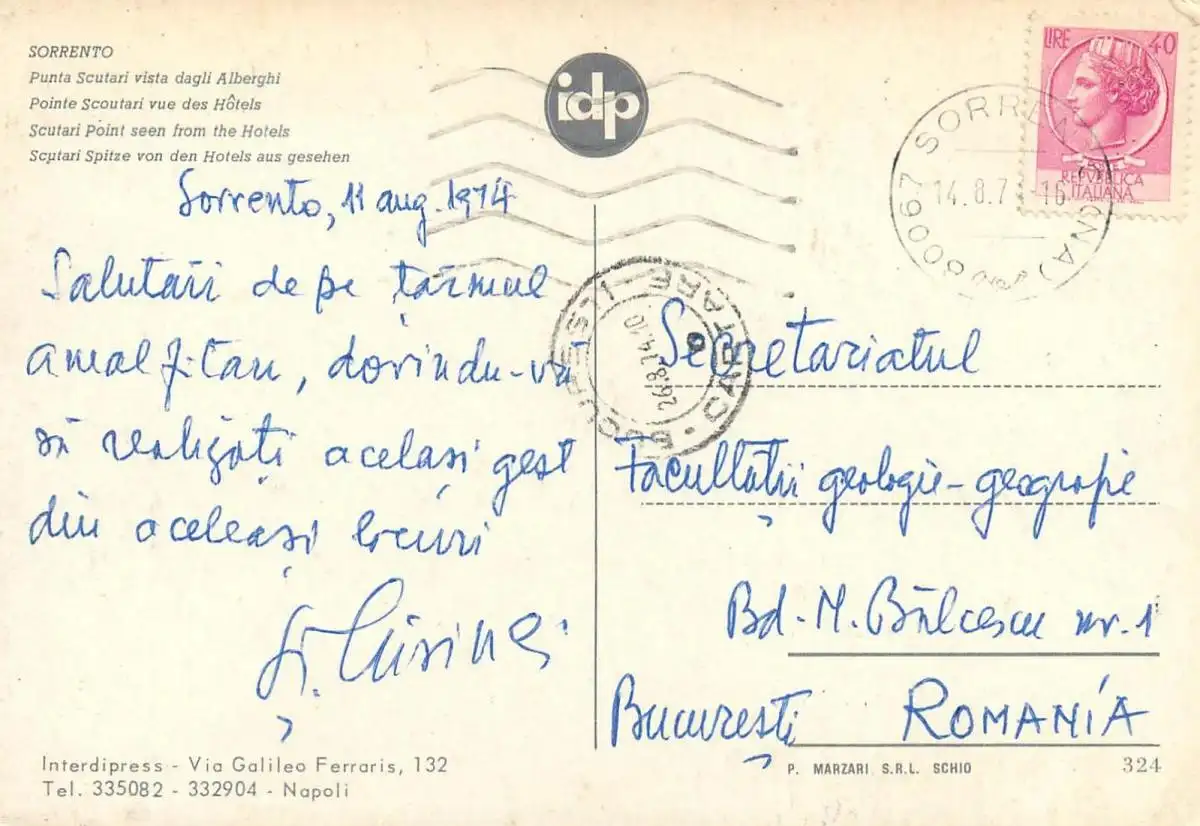 SORRENTO
Punta Scutari vista dagli Alberghi
Pointe Scoutari vue des Hôtels
Scutari Point seen from the Hotels
Scutari Spitze von den Hotels aus gesehen
idp
LIRE 40
REPVBBLICA
ITALIANA
80067 SORRE
14.8.7 -16
Sorrento, 11 aug. 1974
Salutari de pe țărmul
amalfitan, dorindu-vă
să realizați același gest
din aceleași locuri
BUCUREȘTI CARTARE
26.8.74.10
Secretariatul
Facultății geologie-geografie
Bd. N. Bălcescu nr. 1
București ROMANÍA
Interdipress - Via Galileo Ferraris, 132
Tel. 335082 - 332904 - Napoli
P. MARZARI S.R.L. SCHIO
324